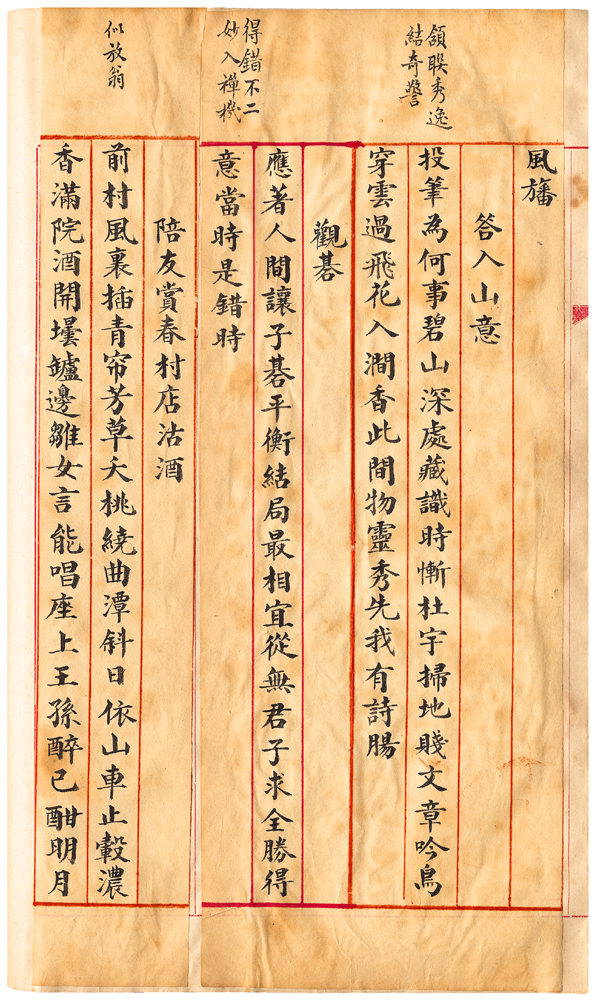 頷聯秀逸
結奇警
得錯不二
妙入禪機
似放翁
風旛
答入山意
投筆為何事碧山深處藏識時慚杜宇掃地賤文章吟鳥
穿雲過飛花入澗香此間物靈秀先我有詩腸
觀碁
應著人間讓子碁平衡結局最相宜從無君子求全勝得
意當時是錯時
陪友賞春村店沽酒
前村風裏插青帘芳草夭桃繞曲潭斜日依山車止轂濃
香滿院酒開壜罏邊雛女言能唱座上王孫醉已酣明月